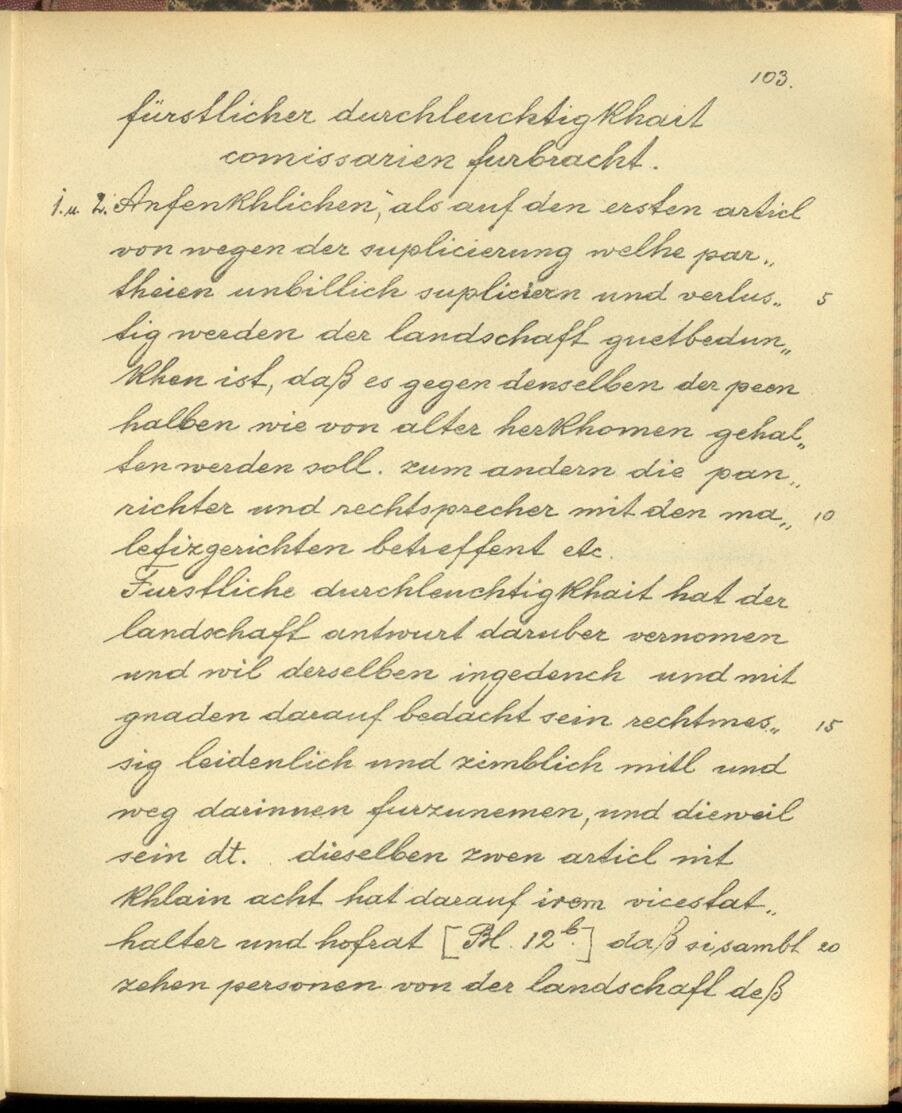 103.
fürstlicher durchleuchtigkhait
comissarien furbracht.
1. u. 2. Anfenkhlichen, als auf den ersten articl
von wegen der suplicierung welhe par„
theien unbillich supliciern und verlus„ 5
tig werden der landschaft guetbedun„
khen ist, daß es gegen denselben der peen
halben wie von alter herkhomen gehal„
ten werden soll. zum andern die pan„
richter und rechtsprecher mit den ma„ 10
lefizgerichten betreffent etc.
Furstliche durchleuchtigkhait hat der
landschaft antwurt daruber vernomen
und wil derselben ingedench und mit
gnaden darauf bedacht sein rechtmes„ 15
sig leidenlich und zimblich mitl und
weg darinnen furzunemen, und dieweil
sein dt. dieselben zwen articl nit
khlain acht hat darauf irem vicestat„
halter und hofrat [Bl. 12b.] daß si sambt 20
zehen personen von der landschaft deß